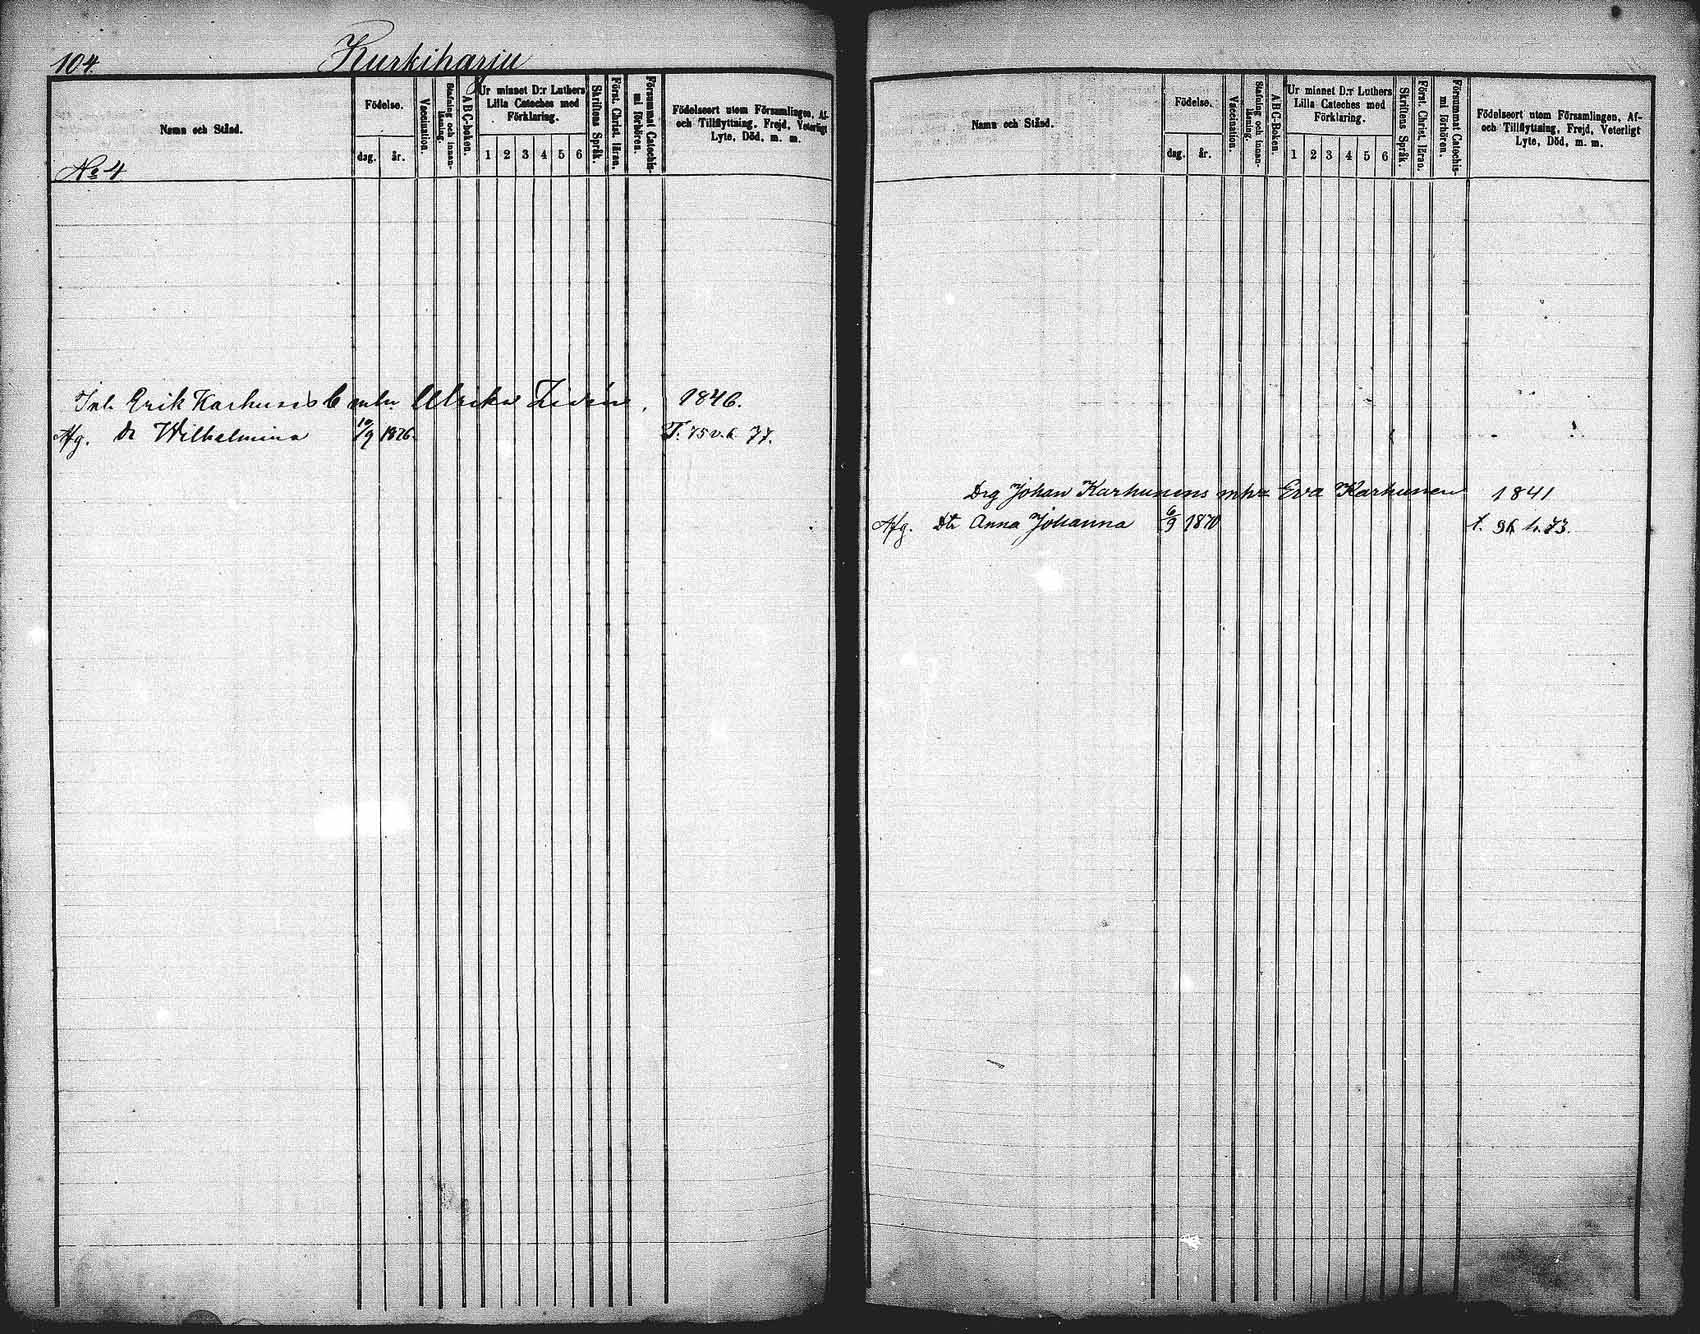 104.
Kurkiharju
Namn och Stånd.
Födelse.
dag.
år.
Vaccination.
Stafning och innan-
läsning.
A B C-boken.
Ur minnet D:r Luthers
Lilla Cateches med
Förklaring.
1 2 3 4 5 6
Skriftens Språk.
Först. Christ. läran.
Försummat Catechis-
mi förhören.
Födelseort utom Församlingen, Af-
och Tillflyttning, Frejd, Veterligt
Lyte, Död, m. m.
No 4
Inh. Erik Karhunens mhr Ulrika 1846.
Afg. Dr Wilhelmina 10/9 1876. T. 77.
Namn och Stånd.
Födelse.
dag.
år.
Vaccination.
Stafning och innan-
läsning.
A.B.C-Boken.
Ur minnet D:r Luthers
Lilla Cateches med
Förklaring.
1 2 3 4 5 6
Skriftens Språk.
Först. Christ. läran.
Försummat Catechis-
mi förhören.
Födelseort utom Församlingen, Af-
och Tillflyttning, Frejd, Veterligt
Lyte, Död, m. m.
Drg Johan Karhunens mhr Eva Karhunen 1841
Afg. Dtr Anna Johanna 6/9 1870 t. 73.